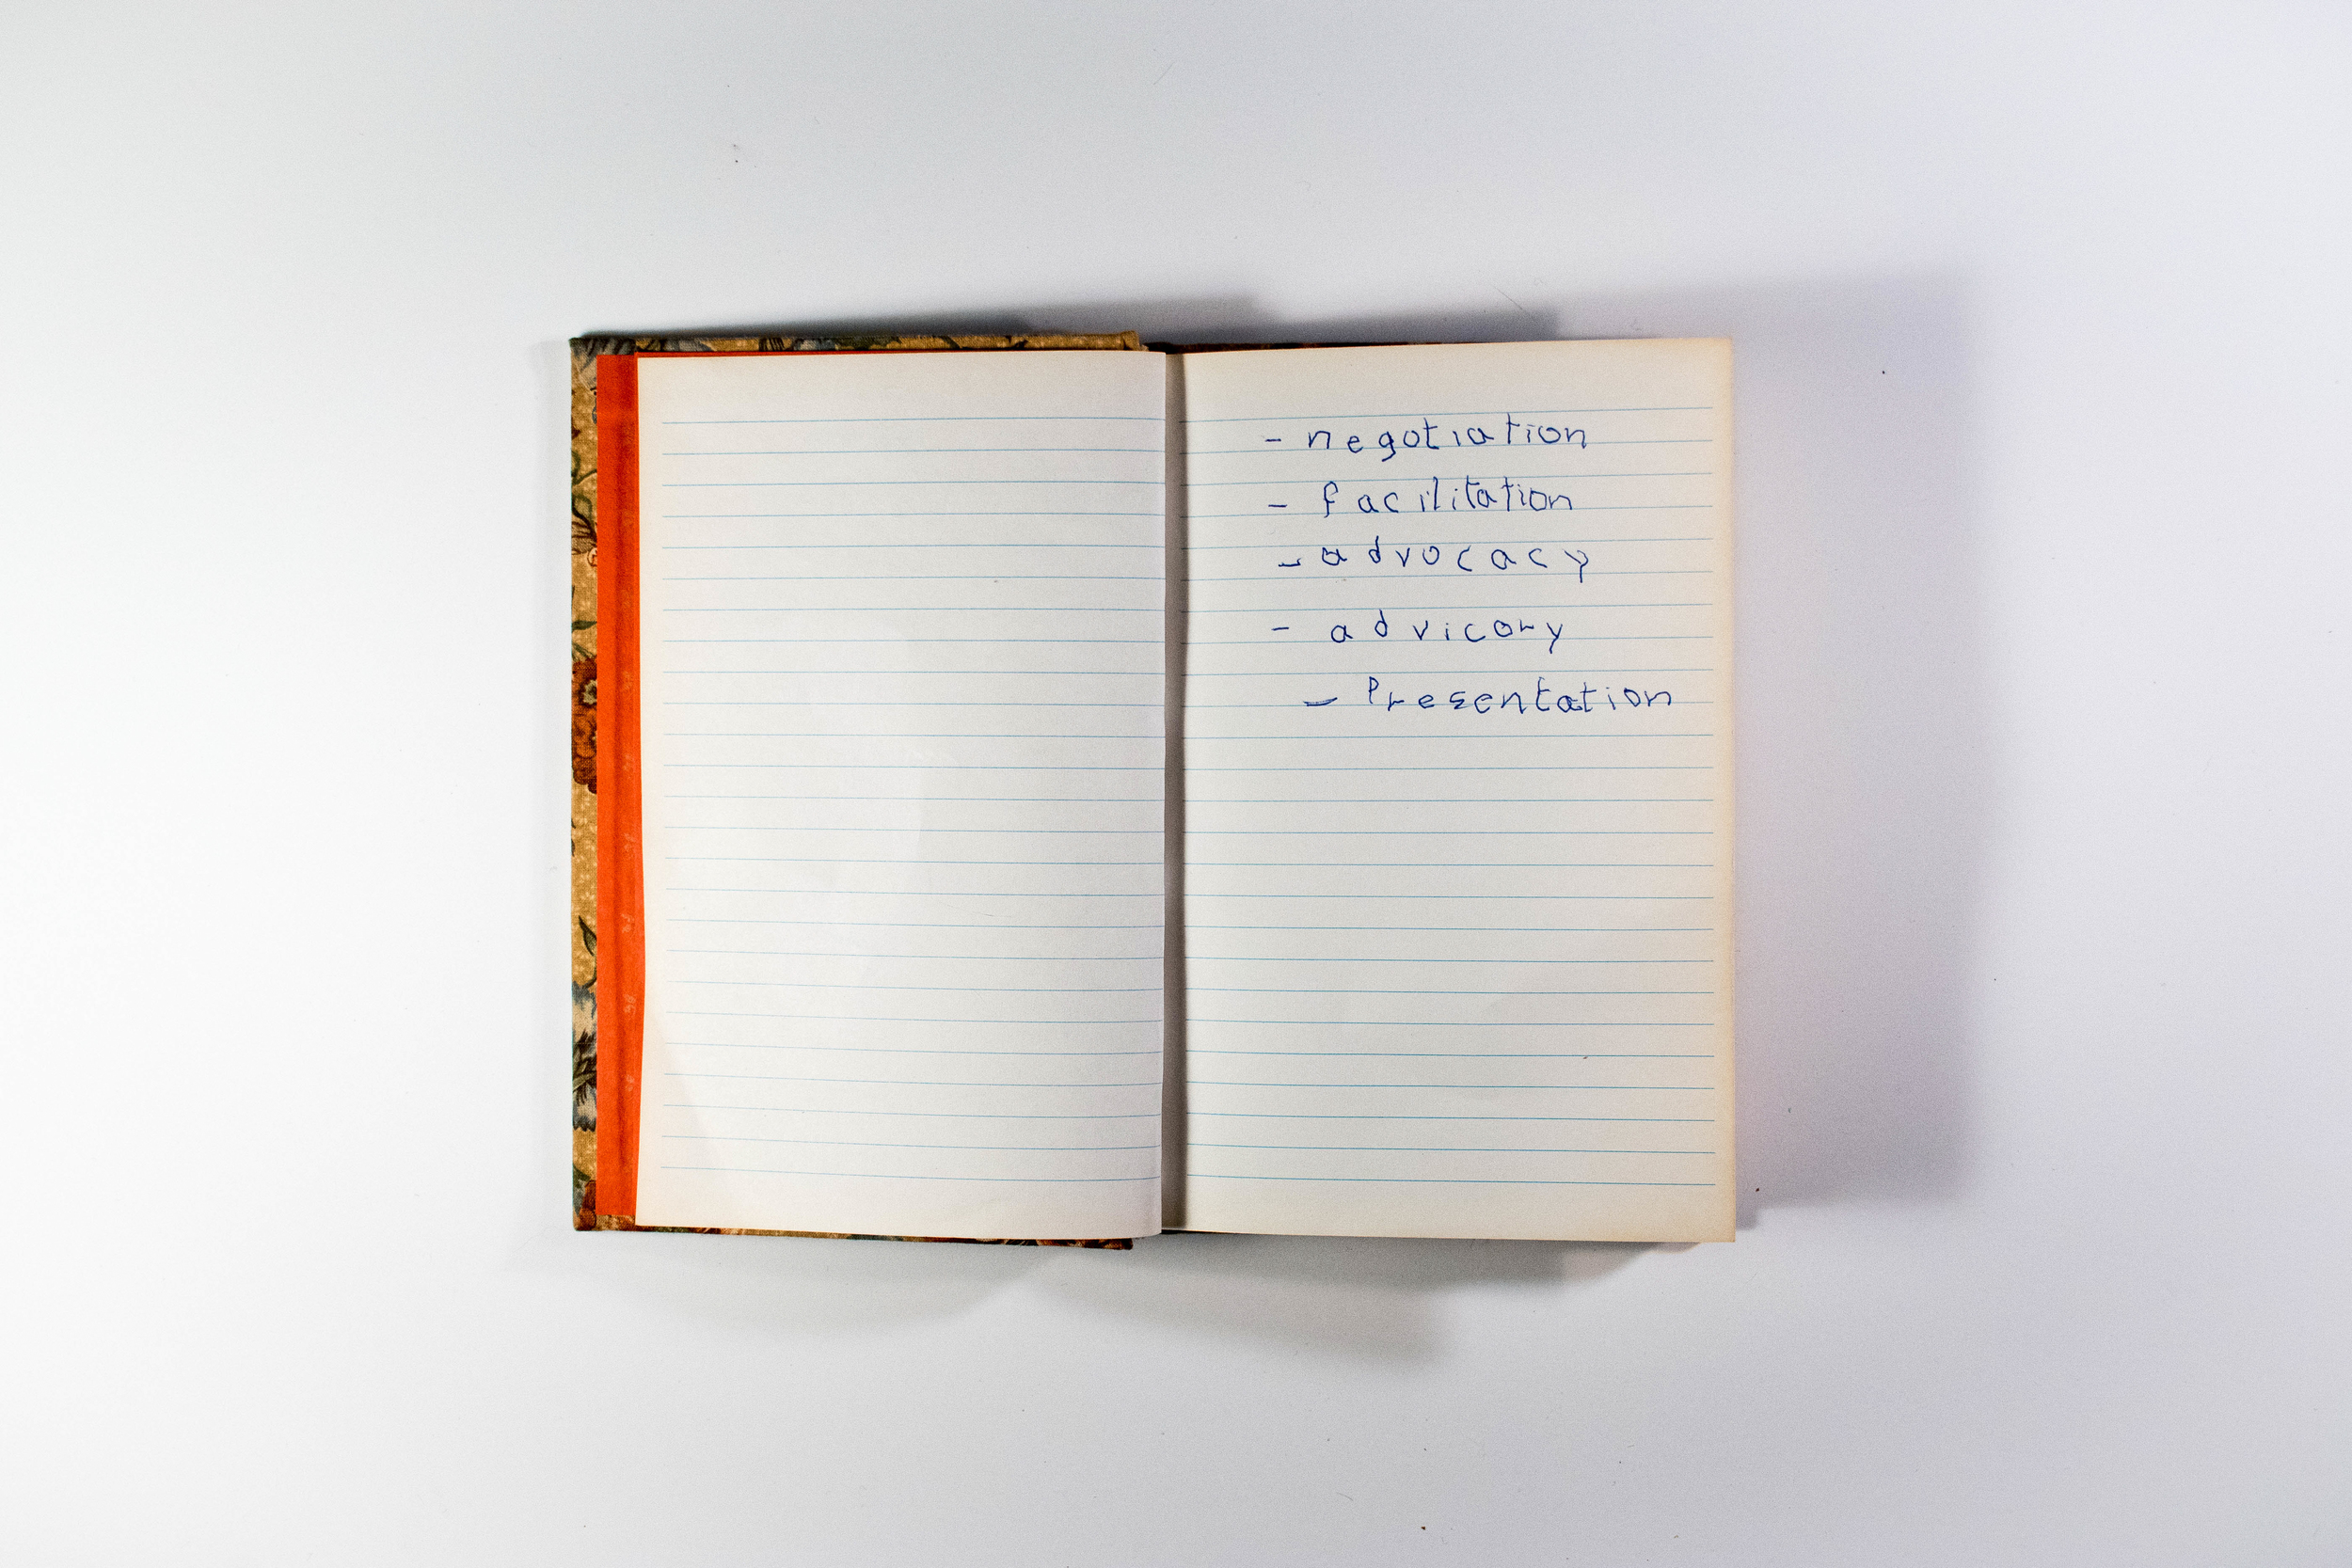 - negotiation
- facilitation
- advocacy
- advicory
- Presentation